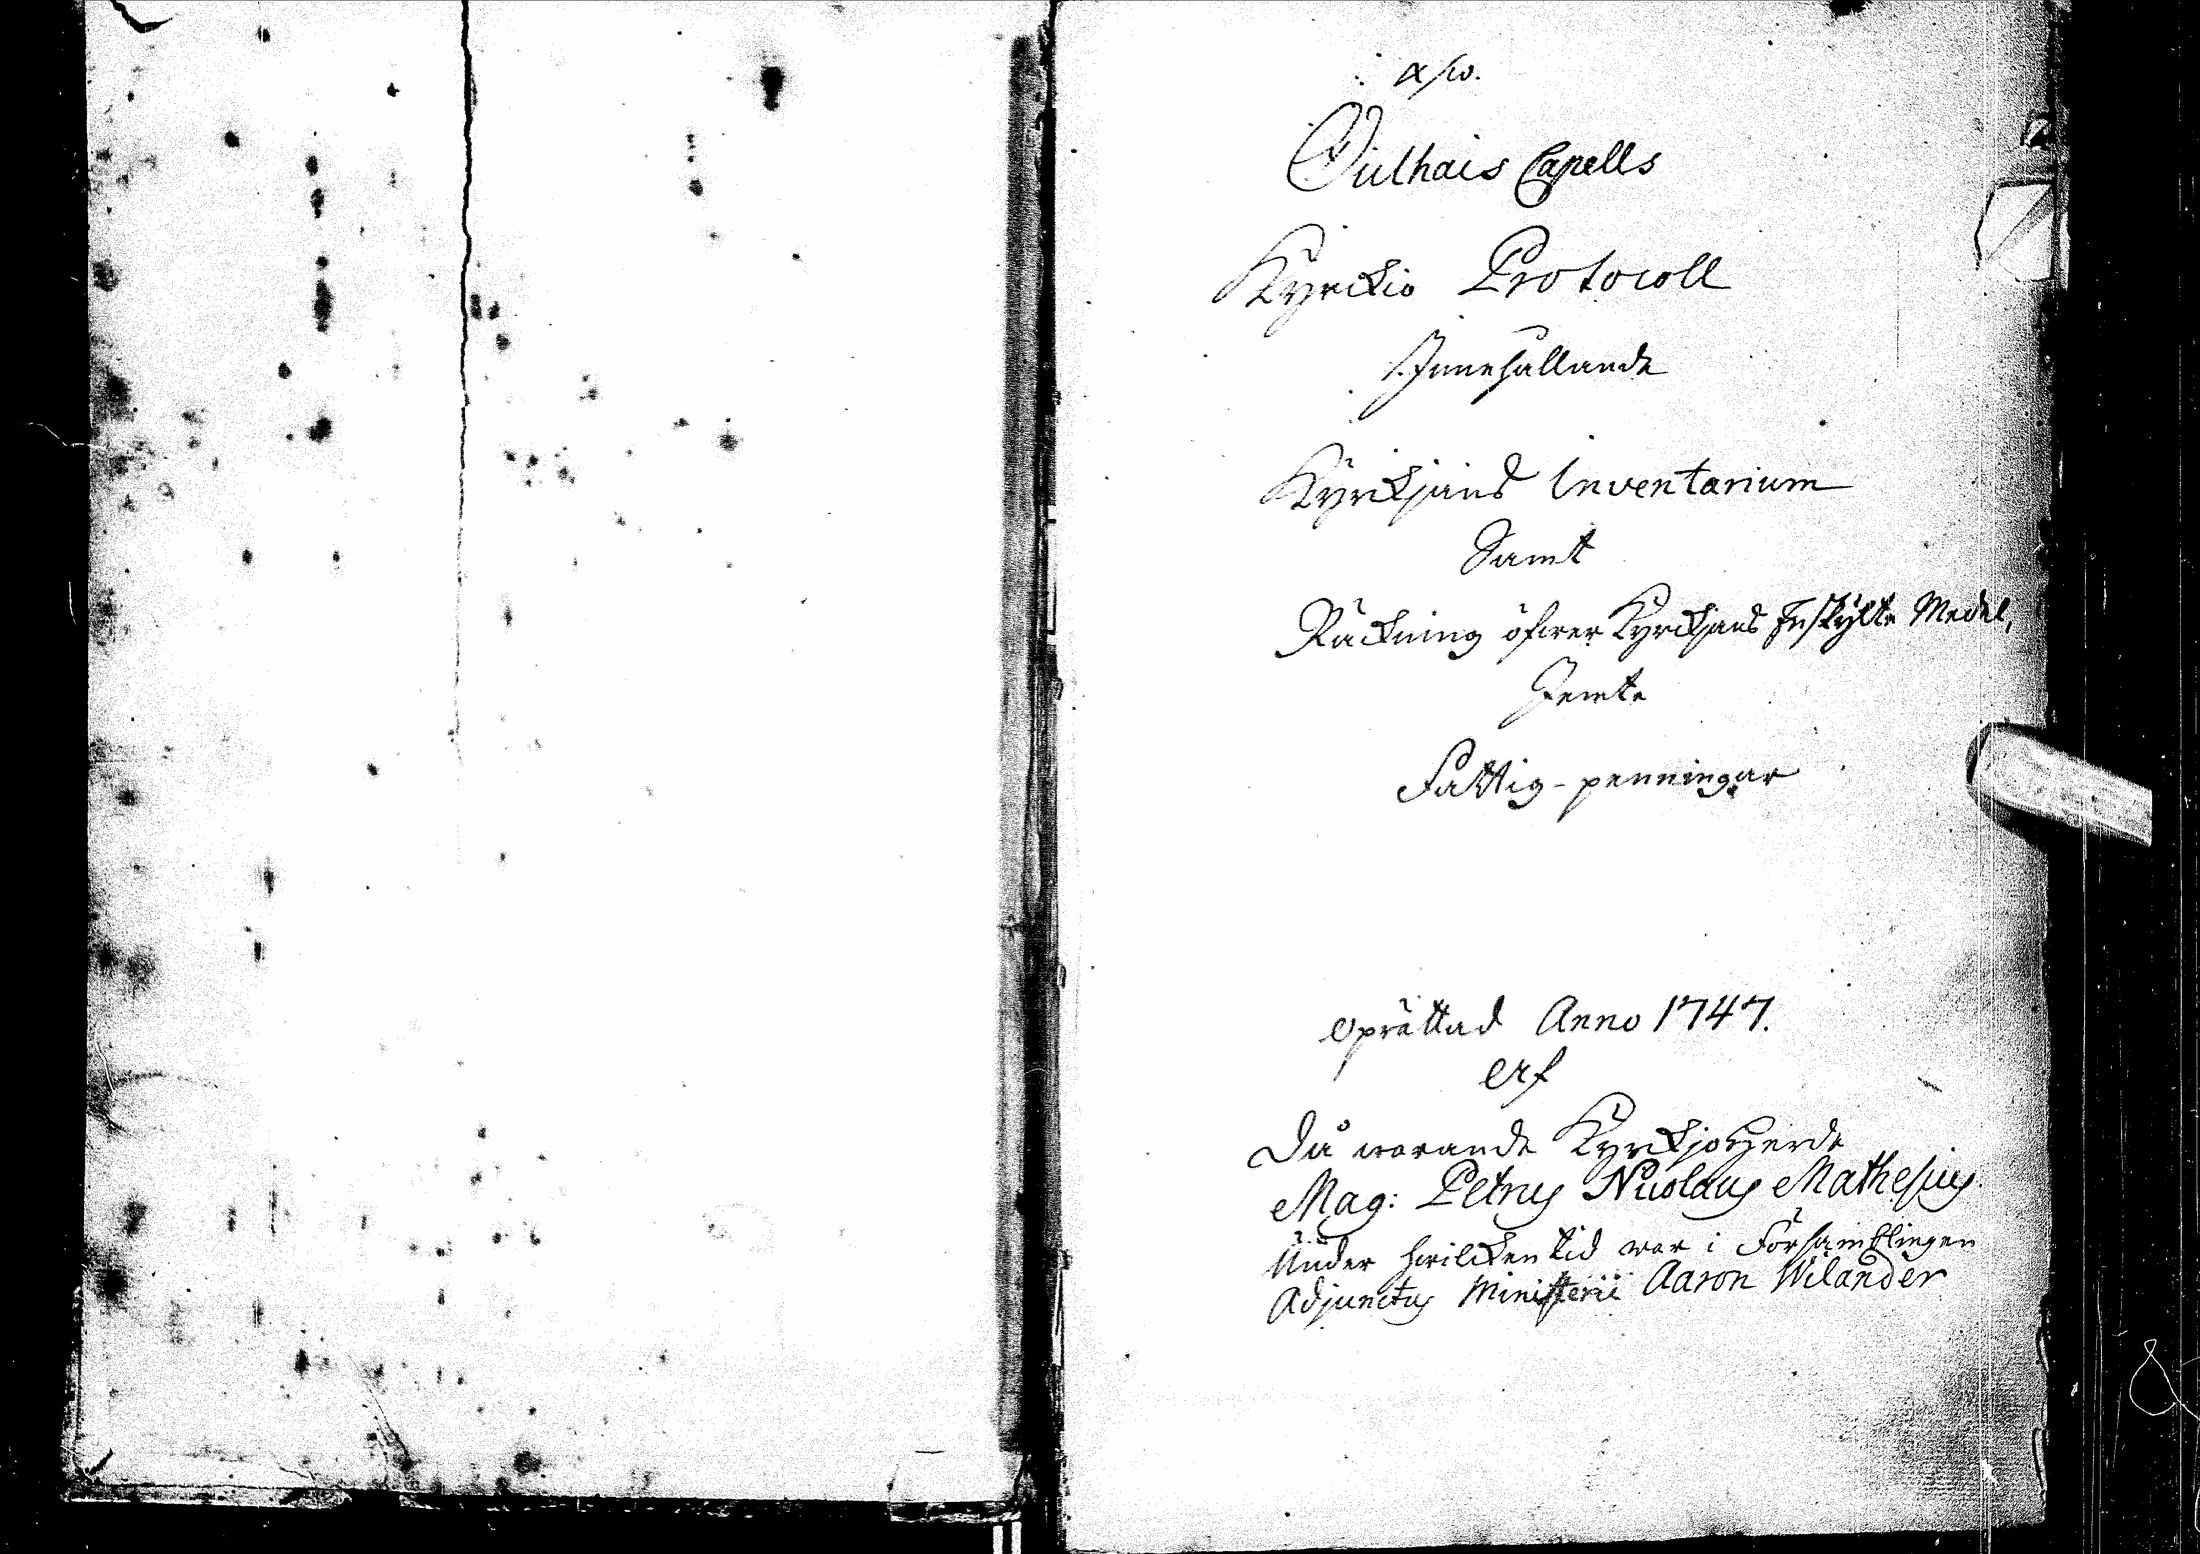 α/ω.
Oulhais Capells
Kyrckio Protocoll
Innehållande
Kyrckjans Inventarium
Samt
Räckning öfwer Kyrckjans Enskÿlte Medel,
Jemte
Fattig-penningar
Oprättad Anno 1747.
Då warande Kyrckjoherde
Mag: Petrus Nicolaus Mathesius.
Under hwilcken tid war i Församblingen
Adjunctus Ministerii Aaron Wilander